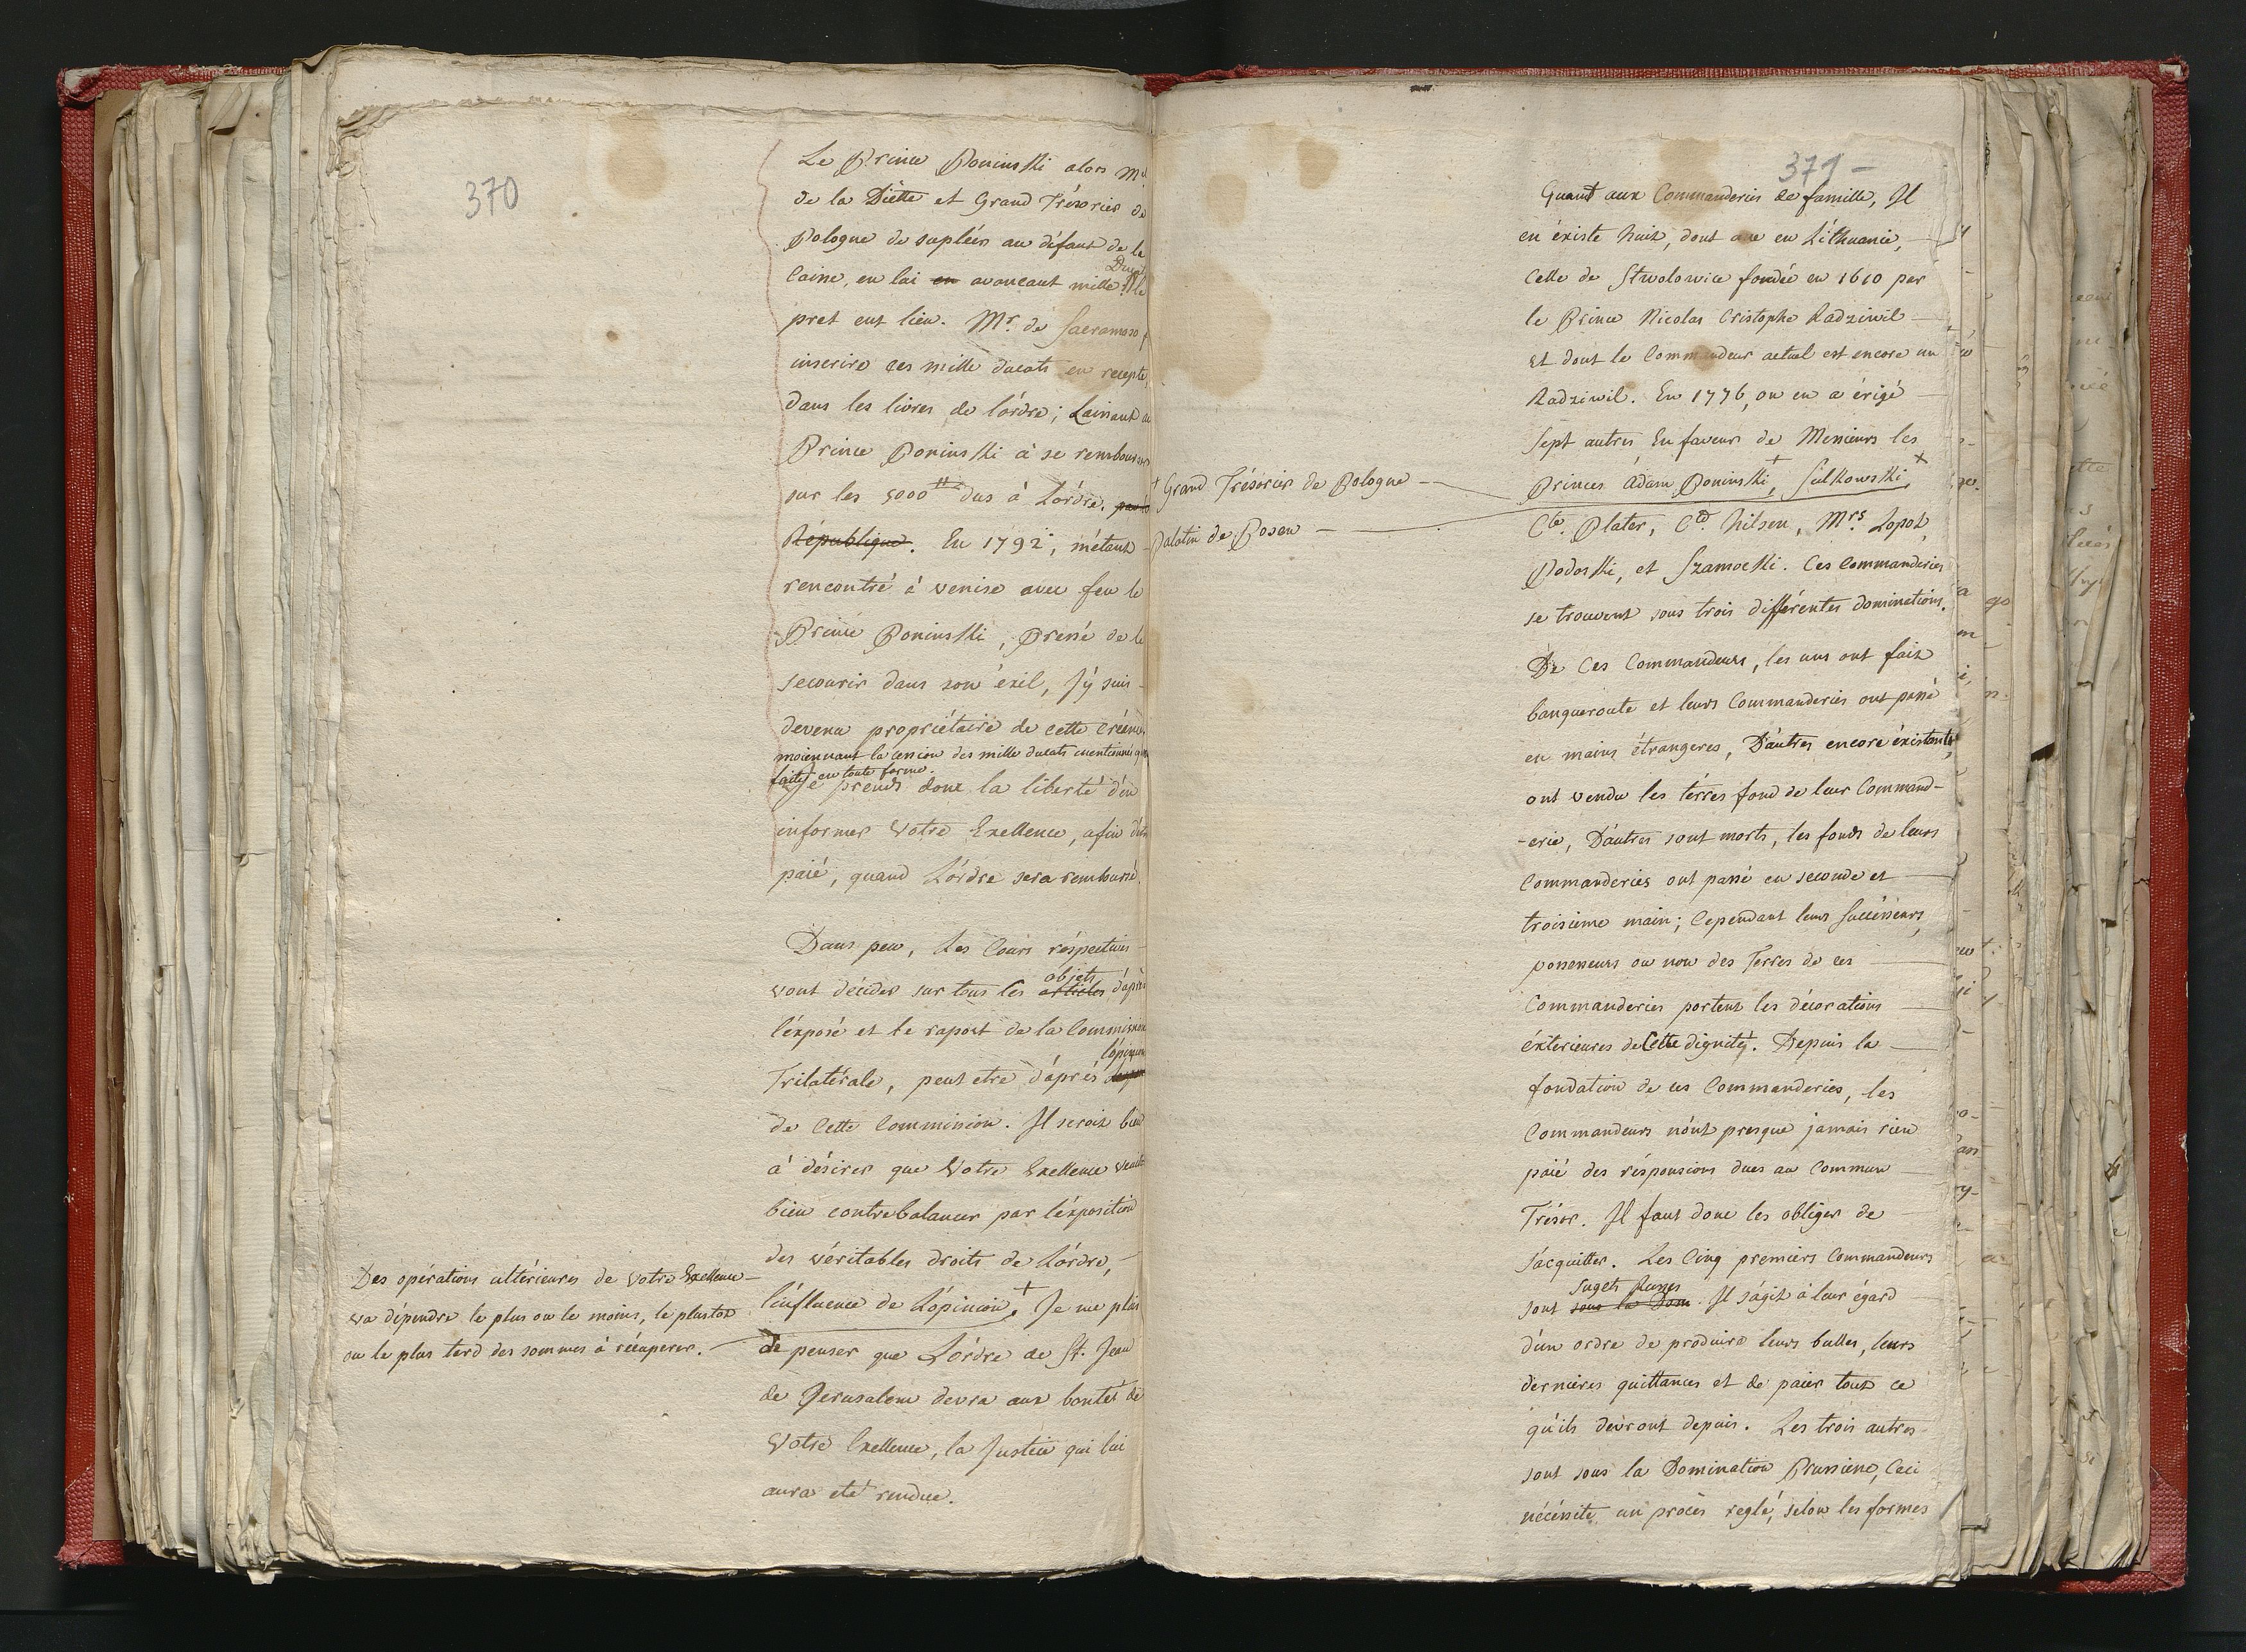 370
Le Prince Poninski alors Mal
de la Diètte et Grand Trésorier de
Pologne de supléer au défaut de la
Caisse, en lui en avancant mille Ducats le
pret eut lieu. Mr. de Sacramoso
inscrire ces mille ducats en recepte,
dans les livres de l'órdre; Laissant au
Prince Poninski à se rembourser
sur les 5000 dus à L'órdre. par la
République. En 1792, m'étant
rencontré à Venise avec feu le
Prince Poninski, Pressé de le
secourir dans son éxil, J'y suis
devenu propriétaire de cette Créance
moiennant la cession des mille ducats mentionnés
faite en toute forme.
Je prends donc la liberté d'en
informer Votre Exellence, afin d'etre
paié, quand L'órdre sera remboursé.
Dans peu, Les Cours réspectives
vont décider sur tous les articles objets d'après
l'éxposé et le raport de la Commission
Trilatérale, peut etre d'après l'opinion
de Cette Commission. Il seroit bien
à désirer que Votre Exellence veuille
bien contrebalancer par l'éxposition
des véritables droits de L'órdre,
l'influence de L'ópinion. + Je me plais
de penser que L'órdre de St. Jean
de Jerusalem devra aux bontés de
Votre Exellence, la Justice qui lui
aura eté rendue.
Des opérations ultérieures de Votre Exellence
va dépendre le plus ou le moins, le plustot
ou le plus tard des sommes à récuperer.
371
Quant aux Commanderies de famille, Il
en éxiste huit, dont une en Lithuanie,
Celle de Stwolowice fondée en 1610 par
le Prince Nicolas Cristophe Radziwil
et dont le Commandeur actuel est encore un
Radziwil. En 1776, on en a érigé
Sept autres En faveur de Messieurs les
Princes Adam Poninski +, Sulkowski +,
+ Grand Trésorier de Pologne
Palatin de Posen
Cte. Plater, Cte. Hilsen, Mrs Lopot,
Podoski, et Szamocki. Ces Commanderies
se trouvent sous trois différentes dominations.
De Ces Commandeurs, les uns ont fait
banqueroute et leurs Commanderies ont passé
en mains étrangeres, D'autres encore éxistants,
ont vendu les térres fond de leur Command-
-erie, D'autres sont morts, les fonds de leurs
Commanderies ont passé en seconde et
troisieme main; Cependant leurs Succésseurs,
possesseurs ou non des Terres de ces
Commanderies portent les décorations
éxterieures de Cette dignité. Depuis la
fondation de ces Commanderies, les
Commandeurs n'ónt presque jamais rien
paié des résponsions dues au Commun
Trésor. Il faut donc les obliger de
s'acquitter. Les Cinq premiers Commandeurs
sont sous la Dom Sugets Russes. Il s'ágit à leur égard
d'un ordre de produire leurs bulles, leurs
dernieres quittances et de paier tout ce
qu'ils devront depuis. Les trois autres
sont sous la Domination Prussiene, Ceci
nécéssite un procès reglé, selon les formes